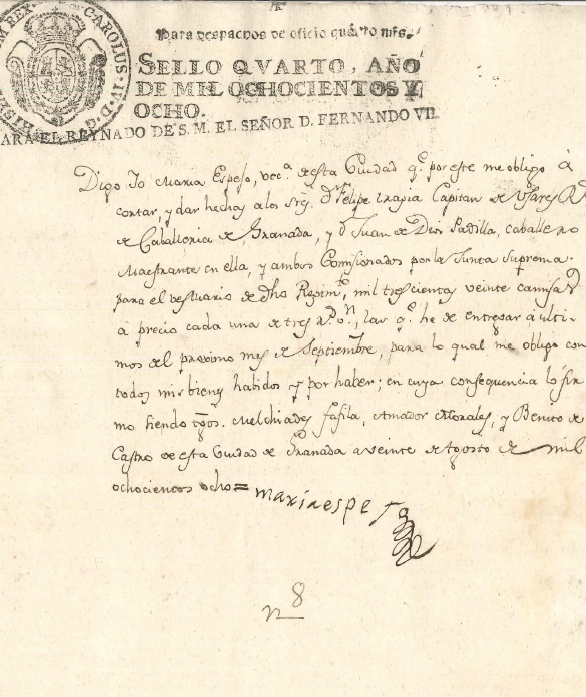 CAROLUS IV D.G.
Para despachos de oficio quatro mrs.
SELLO QVARTO, AÑO
DE MIL OCHOCIENTOS Y
OCHO.
ARA EL REYNADO DE S. M. EL SEÑOR D. FERNANDO VII.
Digo Yo Maria Espeso, vec.ª de esta Ciudad q.e por este me obligo á
cortar, y dar hechas a los Sres. Dn Felipe Capitan de Usares
de Caballeria de Granada, y Dn Juan de Dios Padilla, caballero
Maestrante en ella, y ambos Comisionados por la Junta Suprema
para el vestuario de dho Regim.to, mil trescientas veinte camisas
á precio cada una de tres r.s v.n, las q.e he de entregar á ulti
mos del proximo mes de Septiembre, para lo qual me obligo con
todos mis bienes habidos y por haber; en cuya consequencia lo fir
mo siendo tgos. Melchiades Fafila, Amador Morales, y Benito de
Castro de esta Ciudad de Granada a veinte de Agosto de mil
ochocientos ocho=
maria espeso
n 8